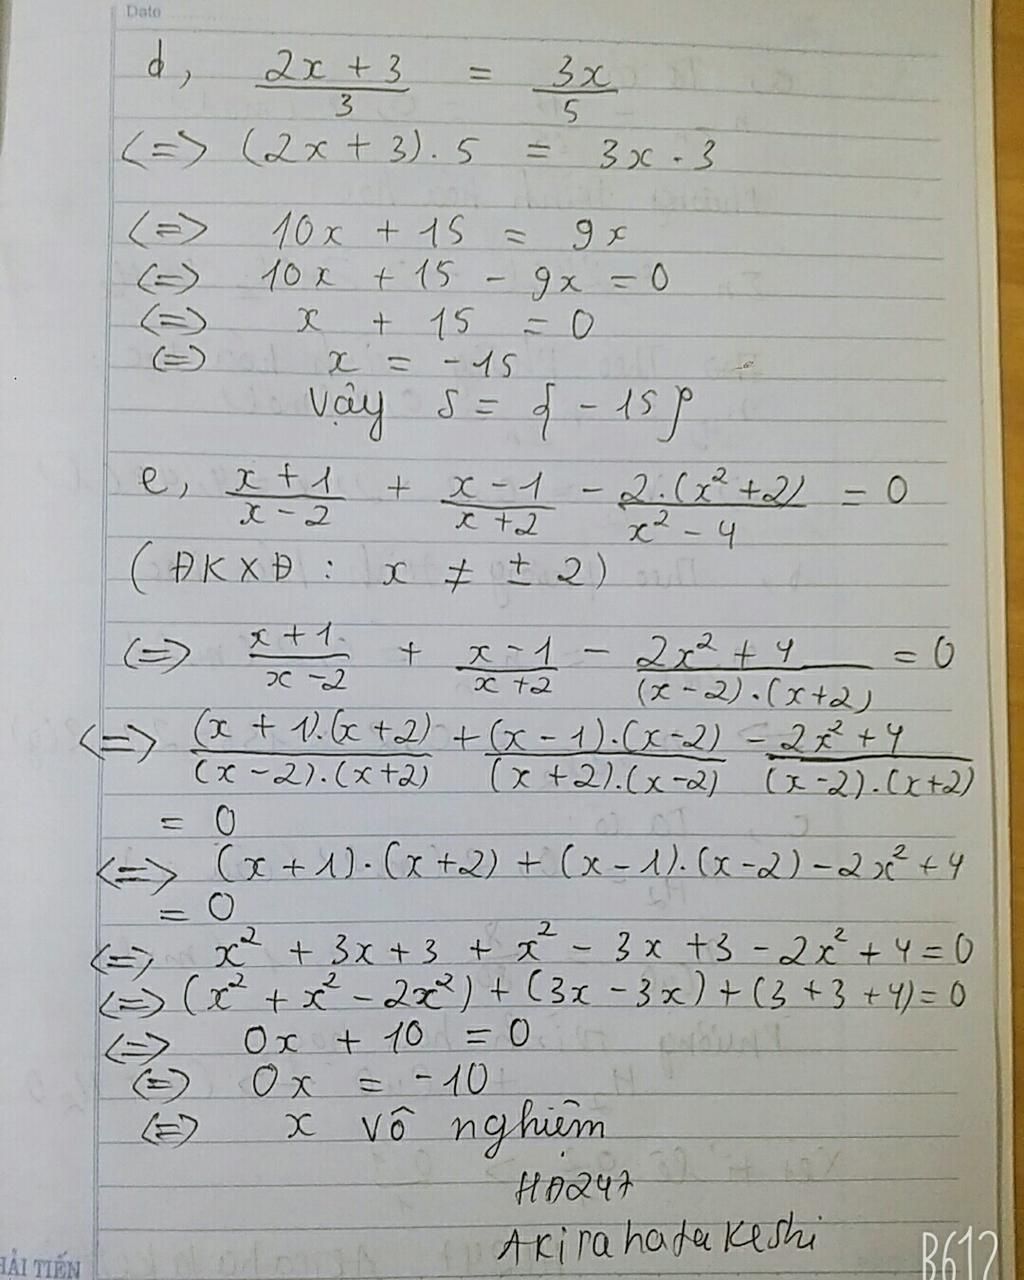 Date
d, (2x + 3)/3 = 3x/5
<=> (2x + 3) . 5 = 3x . 3
<=> 10x + 15 = 9x
<=> 10x + 15 - 9x = 0
<=> x + 15 = 0
<=> x = -15
Vậy S = { -15 }
e, (x + 1)/(x - 2) + (x - 1)/(x + 2) - 2.(x² + 2)/(x² - 4) = 0
( ĐKXĐ : x ≠ ± 2 )
<=> (x + 1)/(x - 2) + (x - 1)/(x + 2) - (2x² + 4)/((x - 2).(x + 2)) = 0
<=> ((x + 1).(x + 2))/((x - 2).(x + 2)) + ((x - 1).(x - 2))/((x + 2).(x - 2)) - (2x² + 4)/((x - 2).(x + 2))
= 0
<=> (x + 1).(x + 2) + (x - 1).(x - 2) - 2x² + 4
= 0
<=> x² + 3x + 3 + x² - 3x + 3 - 2x² + 4 = 0
<=> (x² + x² - 2x²) + (3x - 3x) + (3 + 3 + 4) = 0
<=> 0x + 10 = 0
<=> 0x = -10
<=> x vô nghiệm
Akirahatakeshi
B612
HẢI TIẾN